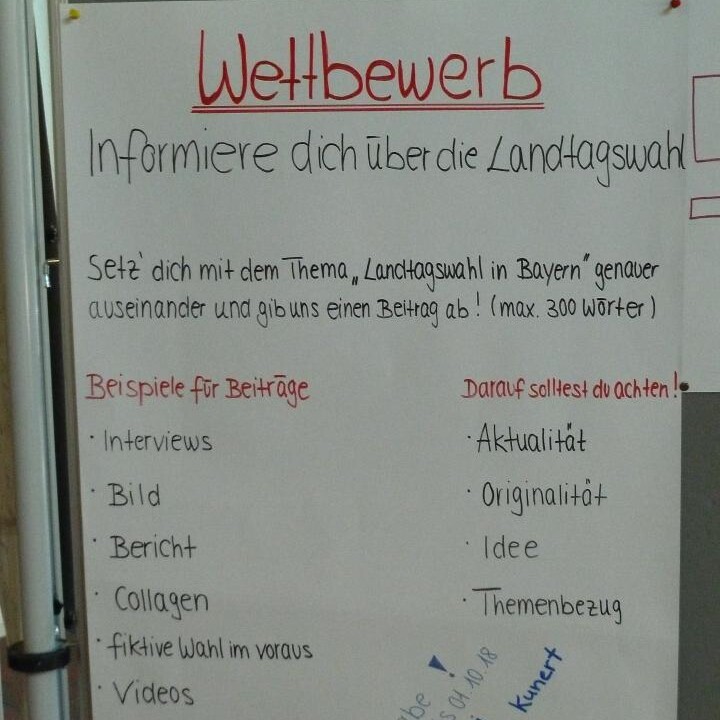 Wettbewerb
Informiere dich über die Landtagswahl
Setz' dich mit dem Thema „Landtagswahl in Bayern" genauer
auseinander und gib uns einen Beitrag ab! (max. 300 Wörter)
Beispiele für Beiträge
· Interviews
· Bild
· Bericht
· Collagen
· fiktive Wahl im voraus
· Videos
Darauf solltest du achten!
· Aktualität
· Originalität
· Idee
· Themenbezug
01.10.18
Kunert